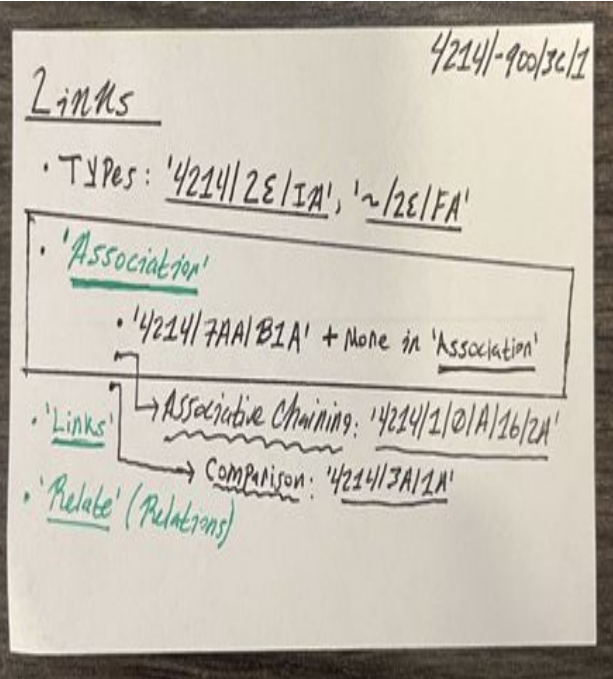 4214/-900/3c/1
Links
• Types: '4214/2E/IA', '~/2E/FA'
• 'Association'
• '4214/7AA/B1A' + More in 'Association'
→ Associative Chaining: '4214/1/0/A/16/2A'
• 'Links'
→ Comparison: '4214/3A/1A'
• 'Relate' (Relations)